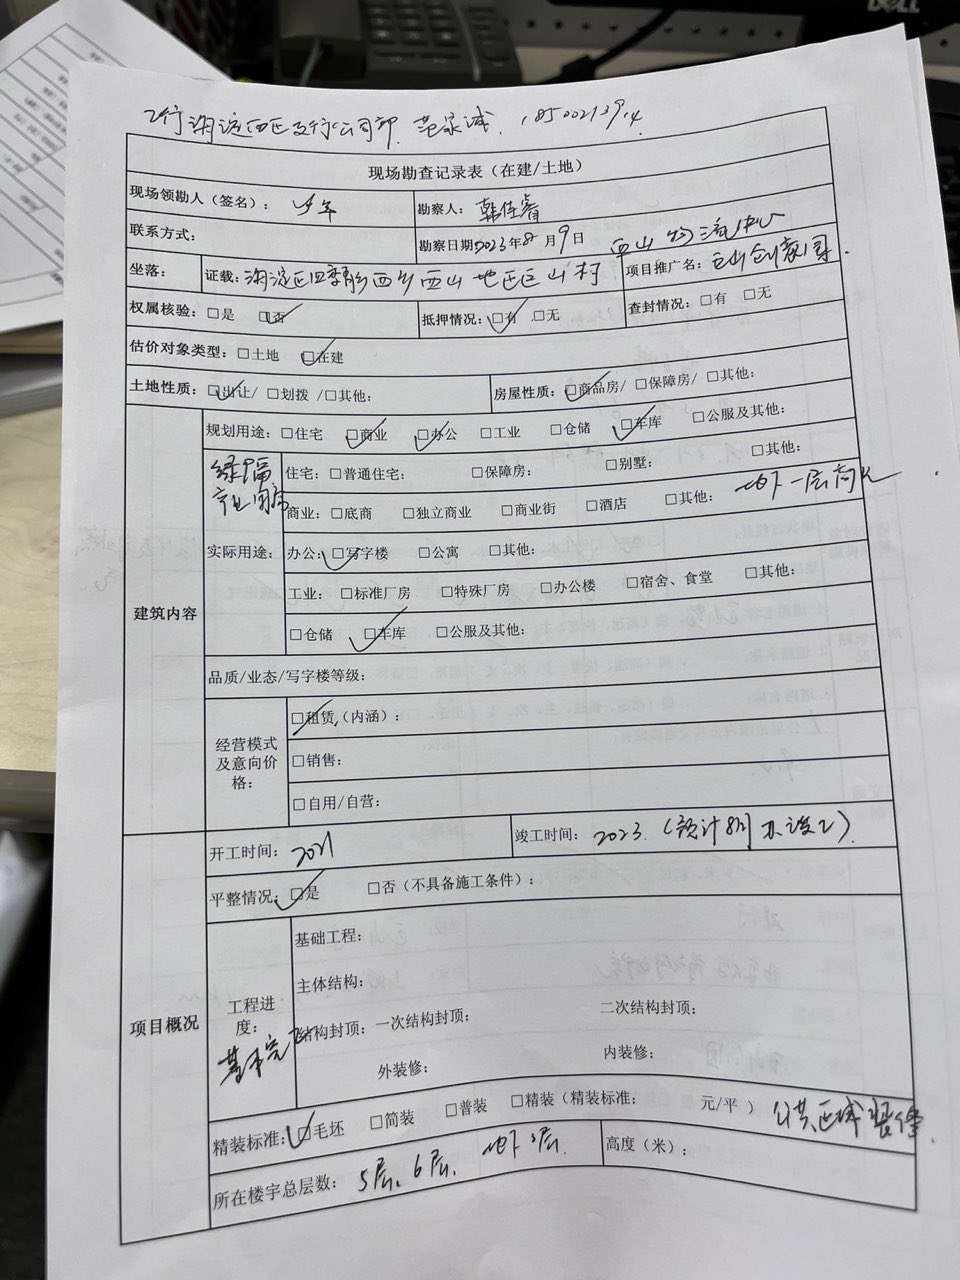 海淀西区支行公司部
现场勘查记录表（在建/土地）
现场领勘人（签名）：
勘察人：韩佳睿
联系方式：
勘察日期2023年8月9日
西山物流中心
坐落：
证载：海淀区四季青乡西山地区巨山村
项目推广名：巨山创意园.
权属核验：□是 □否
抵押情况：□有 □无
查封情况：□有 □无
估价对象类型：□土地 □在建
土地性质：□出让/□划拨/□其他：
房屋性质：□商品房/□保障房/□其他：
建筑内容
规划用途：□住宅 □商业 □办公 □工业 □仓储 □车库 □公服及其他：
绿隔
产业用房
实际用途：
住宅：□普通住宅： □保障房： □别墅： □其他：
商业：□底商 □独立商业 □商业街 □酒店 □其他：地下一层商业
办公：□写字楼 □公寓 □其他：
工业：□标准厂房 □特殊厂房 □办公楼 □宿舍、食堂 □其他：
□仓储 □车库 □公服及其他：
品质/业态/写字楼等级：
经营模式及意向价格：
□租赁（内涵）：
□销售：
□自用/自营：
项目概况
开工时间：2021
竣工时间：2023.（预计8月
平整情况：□是 □否（不具备施工条件）：
工程进度：
基本完工
基础工程：
主体结构：
结构封顶：一次结构封顶： 二次结构封顶：
外装修： 内装修：
精装标准：□毛坯 □简装 □普装 □精装（精装标准： 元/平 ）公共区域装修.
所在楼宇总层数：5层、6层、地下 层.
高度（米）：